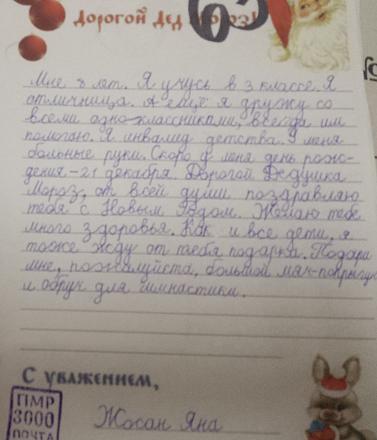 Дорогой Дед Мороз!
63
Мне 8 лет. Я учусь в 3 классе. Я
отличница. А еще я дружу со
всеми одно-классниками, всегда им
помогаю. Я инвалид детства. У меня
больные руки. Скоро у меня день рож-
дения - 21 декабря. Дорогой Дедушка
Мороз, от всей души поздравляю
тебя с Новым Годом. Желаю тебе
много здоровья. Как и все дети, я
тоже жду от тебя подарка. Подари
мне, пожалуйста, большой мяч-попрыгун
и обруч для гимнастики.
С уважением,
Жосан Яна
ПМР
3000
ПОЧТА